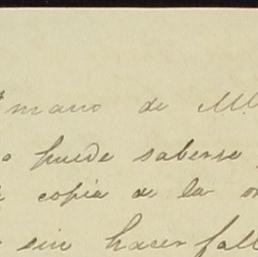 mano de M
o puede saberse
copia de la
sin hacer fall